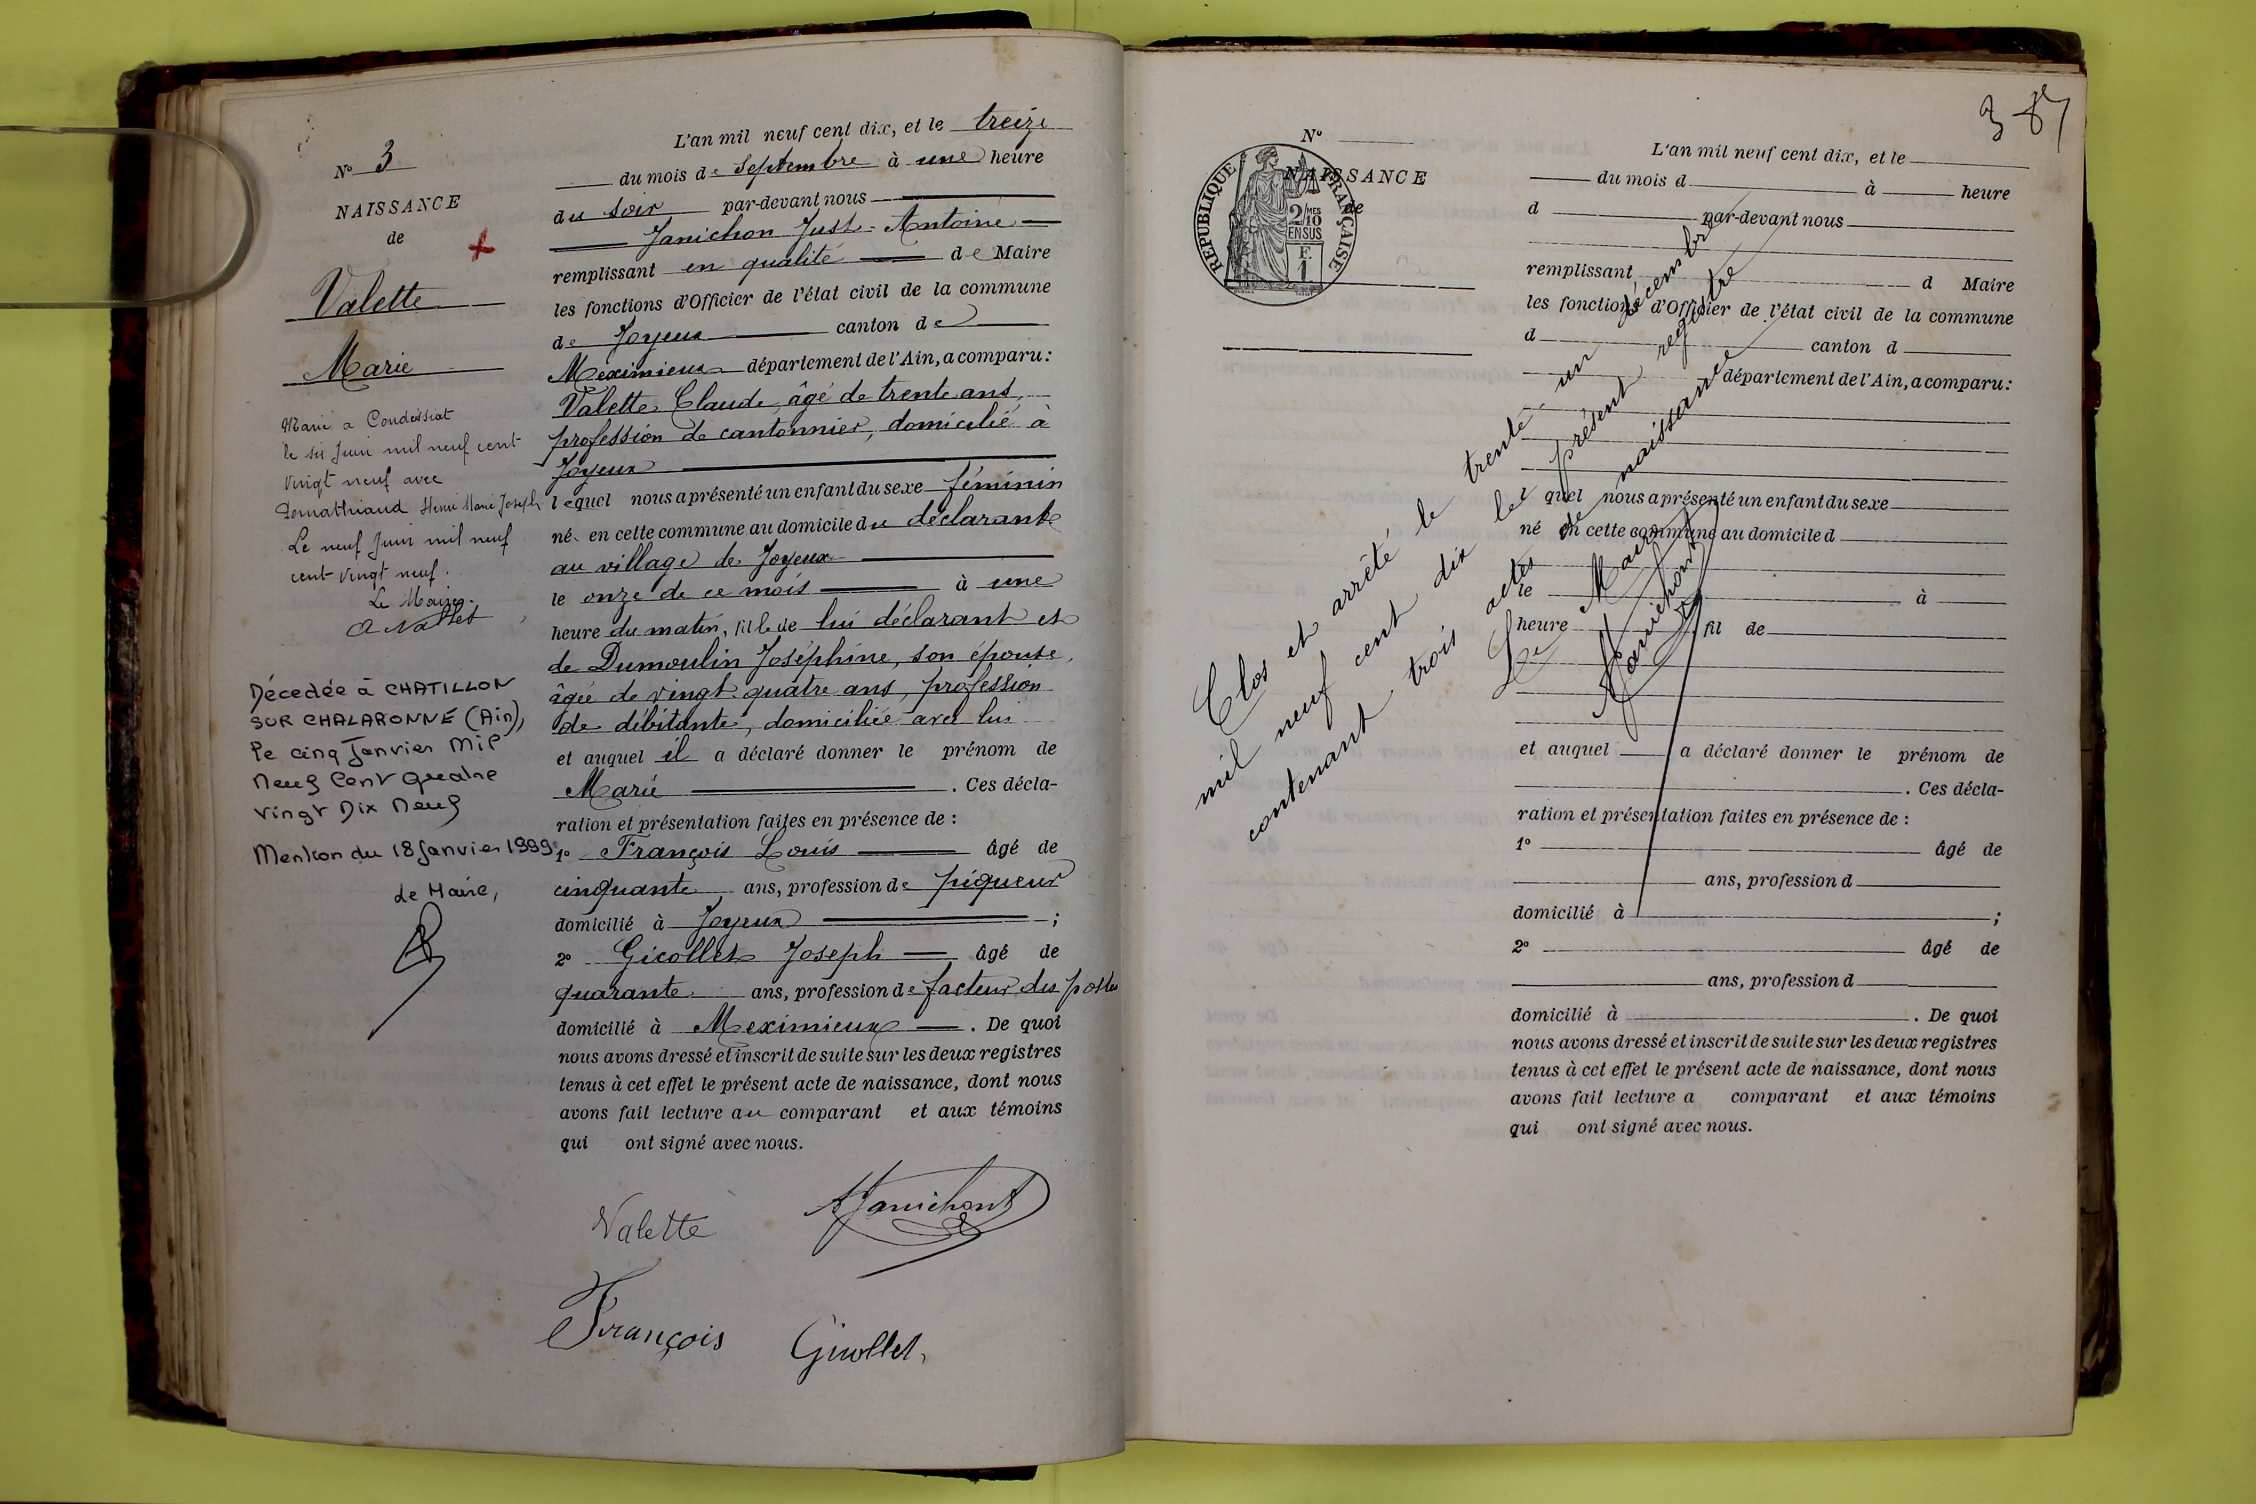 N° 3
NAISSANCE
de
Valette
Marie
Marié a Condeissiat
le six Juin mil neuf cent
vingt neuf avec
Domathiaud Henri Marie Joseph
Le neuf Juin mil neuf
cent vingt neuf.
Le Maire.
Décedée à CHATILLON
SUR CHALARONNE (Ain),
le cinq Janvier Mil
Neuf Cent Quatre
Vingt Dix Neuf
Mention du 18 Janvier 1999
Le Maire,
L'an mil neuf cent dix, et le treize
du mois de Septembre à une heure
du soir par-devant nous
Janichon Just-Antoine
remplissant en qualité de Maire
les fonctions d'Officier de l'état civil de la commune
de Joyeux canton de
Meximieux département de l'Ain, a comparu:
Valette Claude, âgé de trente ans,
profession de cantonnier, domicilié à
Joyeux
lequel nous a présenté un enfant du sexe féminin
né en cette commune au domicile du déclarant
au village de Joyeux
le onze de ce mois à une
heure du matin, fille de lui déclarant et
de Dumoulin Joséphine, son épouse,
âgée de vingt-quatre ans, profession
de débitante, domiciliée avec lui
et auquel il a déclaré donner le prénom de
Marie . Ces décla-
ration et présentation faites en présence de :
1° François Louis âgé de
cinquante ans, profession de piqueur
domicilié à Joyeux ;
2° Gicollet Joseph âgé de
quarante ans, profession de facteur des postes
domicilié à Meximieux . De quoi
nous avons dressé et inscrit de suite sur les deux registres
tenus à cet effet le présent acte de naissance, dont nous
avons fait lecture au comparant et aux témoins
qui ont signé avec nous.
Valette Janichon
François Gicollet
387
N°
NAISSANCE
de
RÉPUBLIQUE FRANÇAISE
2/MES
10
EN SUS
F.
1
L'an mil neuf cent dix, et le
du mois d à heure
d par-devant nous
remplissant d Maire
les fonctions d'Officier de l'état civil de la commune
d canton d
département de l'Ain, a comparu:
l quel nous a présenté un enfant du sexe
né en cette commune au domicile d
le à
heure fil de
et auquel a déclaré donner le prénom de
. Ces décla-
ration et présentation faites en présence de :
1° âgé de
ans, profession d
domicilié à ;
2° âgé de
ans, profession d
domicilié à . De quoi
nous avons dressé et inscrit de suite sur les deux registres
tenus à cet effet le présent acte de naissance, dont nous
avons fait lecture a comparant et aux témoins
qui ont signé avec nous.
Clos et arrêté le trente-un décembre
mil neuf cent dix le présent registre
contenant trois actes de naissance
Le Maire
Janichon